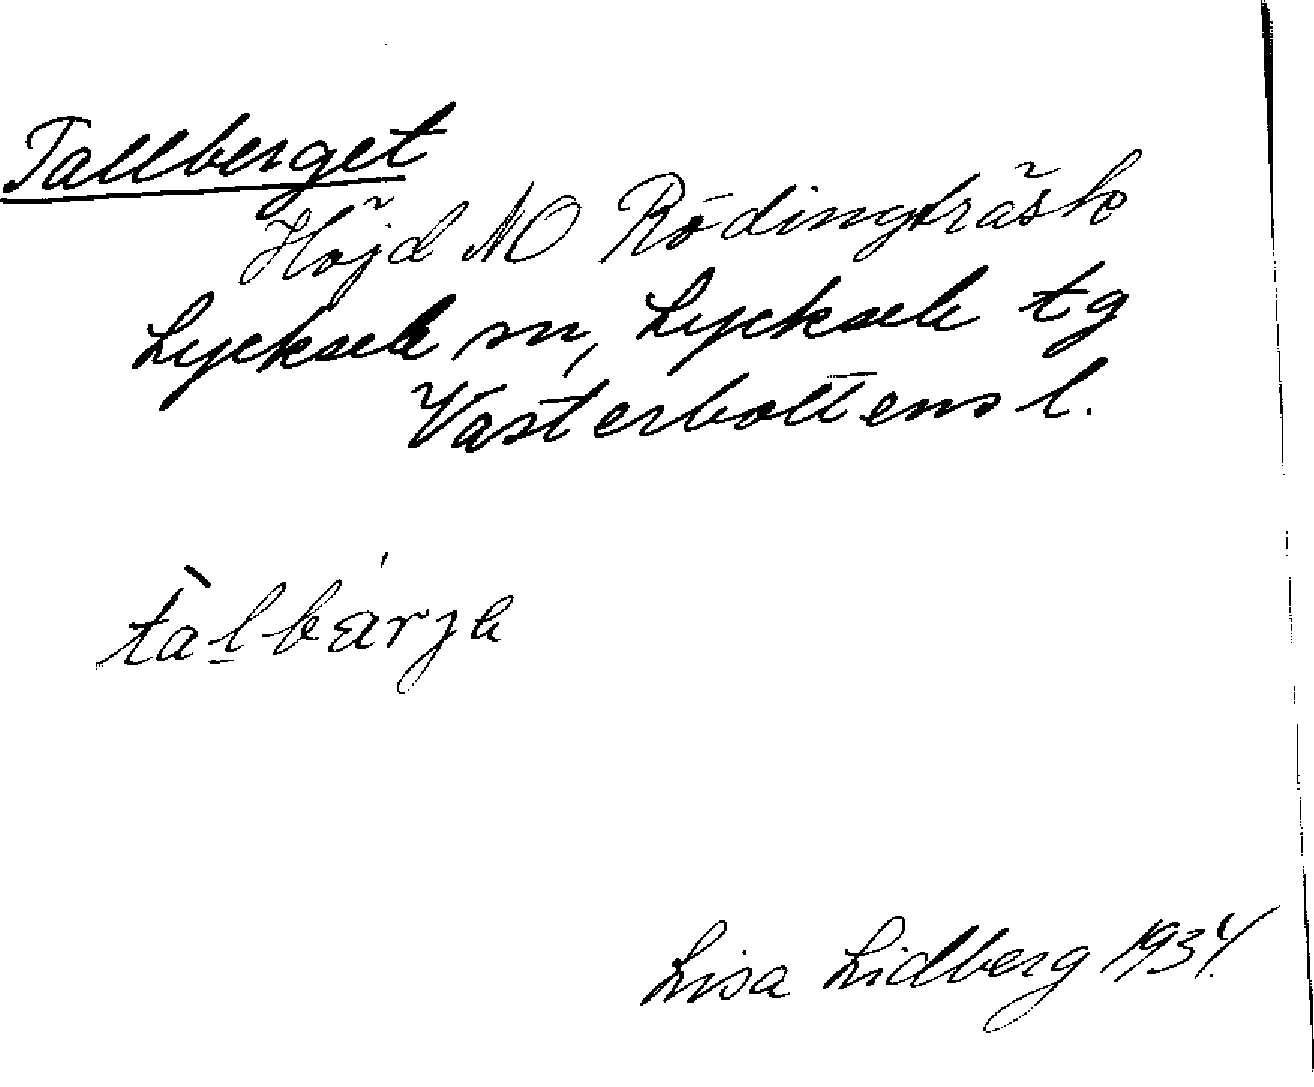 Tallberget
Höjd NO Rödingträsk
Lycksele sn, Lycksele tg
Västerbottens l.
tàlbárja
Lisa Lidberg 1934.